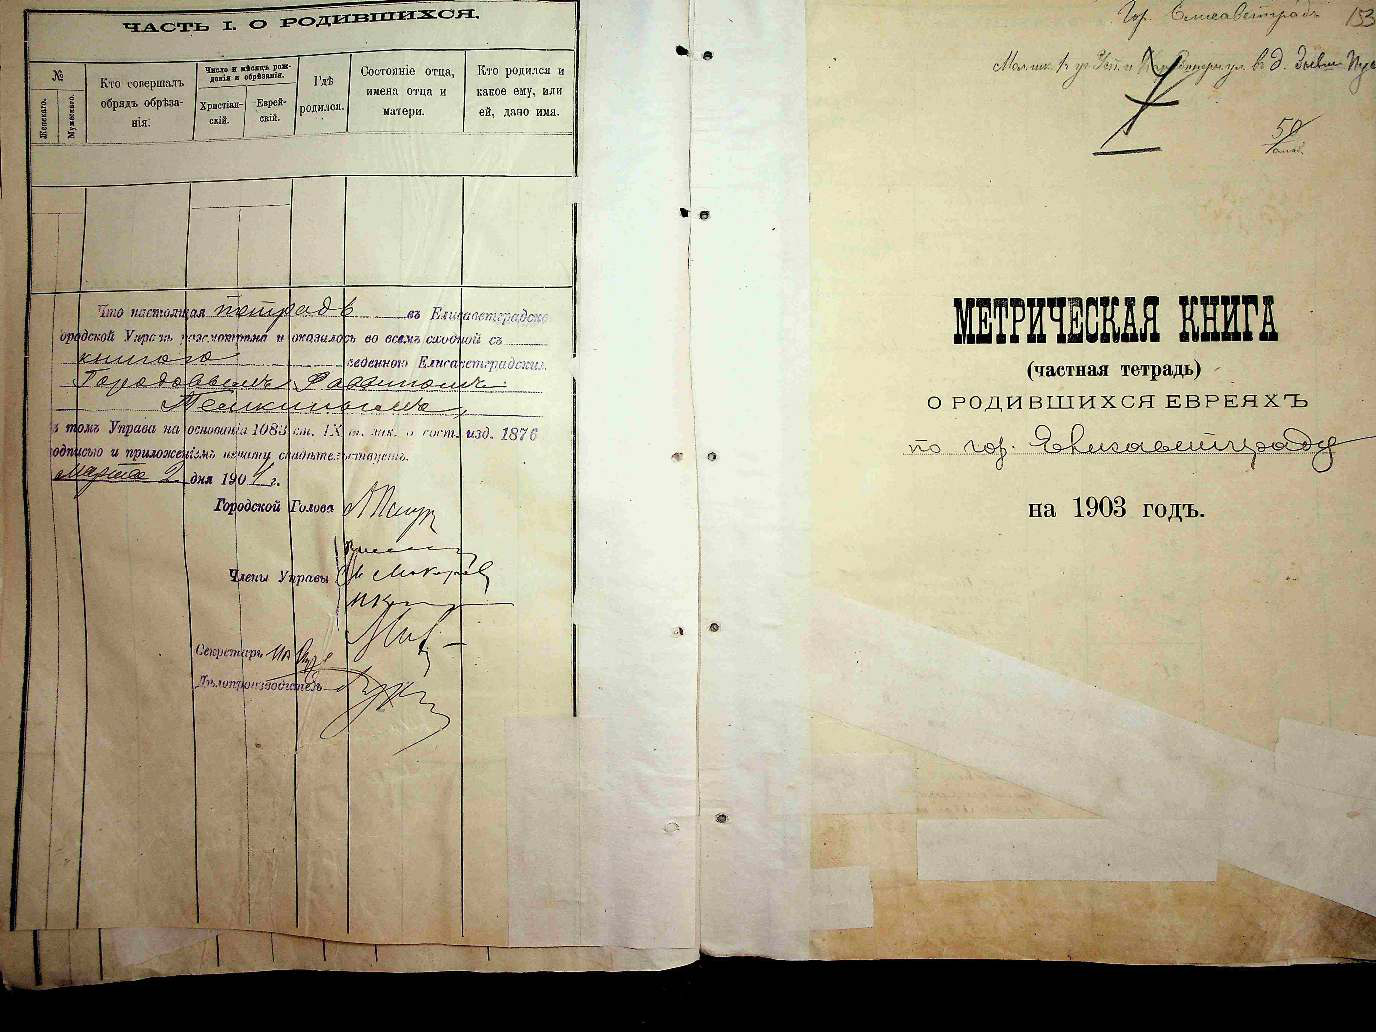 ЧАСТЬ I. О РОДИВШИХСЯ.
№
Женскаго.
Мужескаго.
Кто совершалъ
обрядъ обрѣза-
нія.
Число и мѣсяцъ рож-
денія и обрѣзанія.
Христіан-
скій.
Еврей-
скій.
Гдѣ
родился.
Состояніе отца,
имена отца и
матери.
Кто родился и
какое ему, или
ей, дано имя.
Что настоящая тетрадь въ Елисаветградско
ородской Управѣ разсмотрѣна и оказалось во всемъ сходной съ
книгою веденною Елисаветградским
Городовымъ Раввиномъ
томъ Управа на основаніи 1083 ст. IX т. зак. о сост. изд. 1876
одписью и приложеніемъ печати свидѣтельствуетъ.
Марта 2 дня 1904 г.
Городской Голова
Члены Управы
Секретарь
Дѣлопроизводитель
Гор. Елисаветградъ 153
50
МЕТРИЧЕСКАЯ КНИГА
(частная тетрадь)
О РОДИВШИХСЯ ЕВРЕЯХЪ
по гор. Елисаветграду
на 1903 годъ.